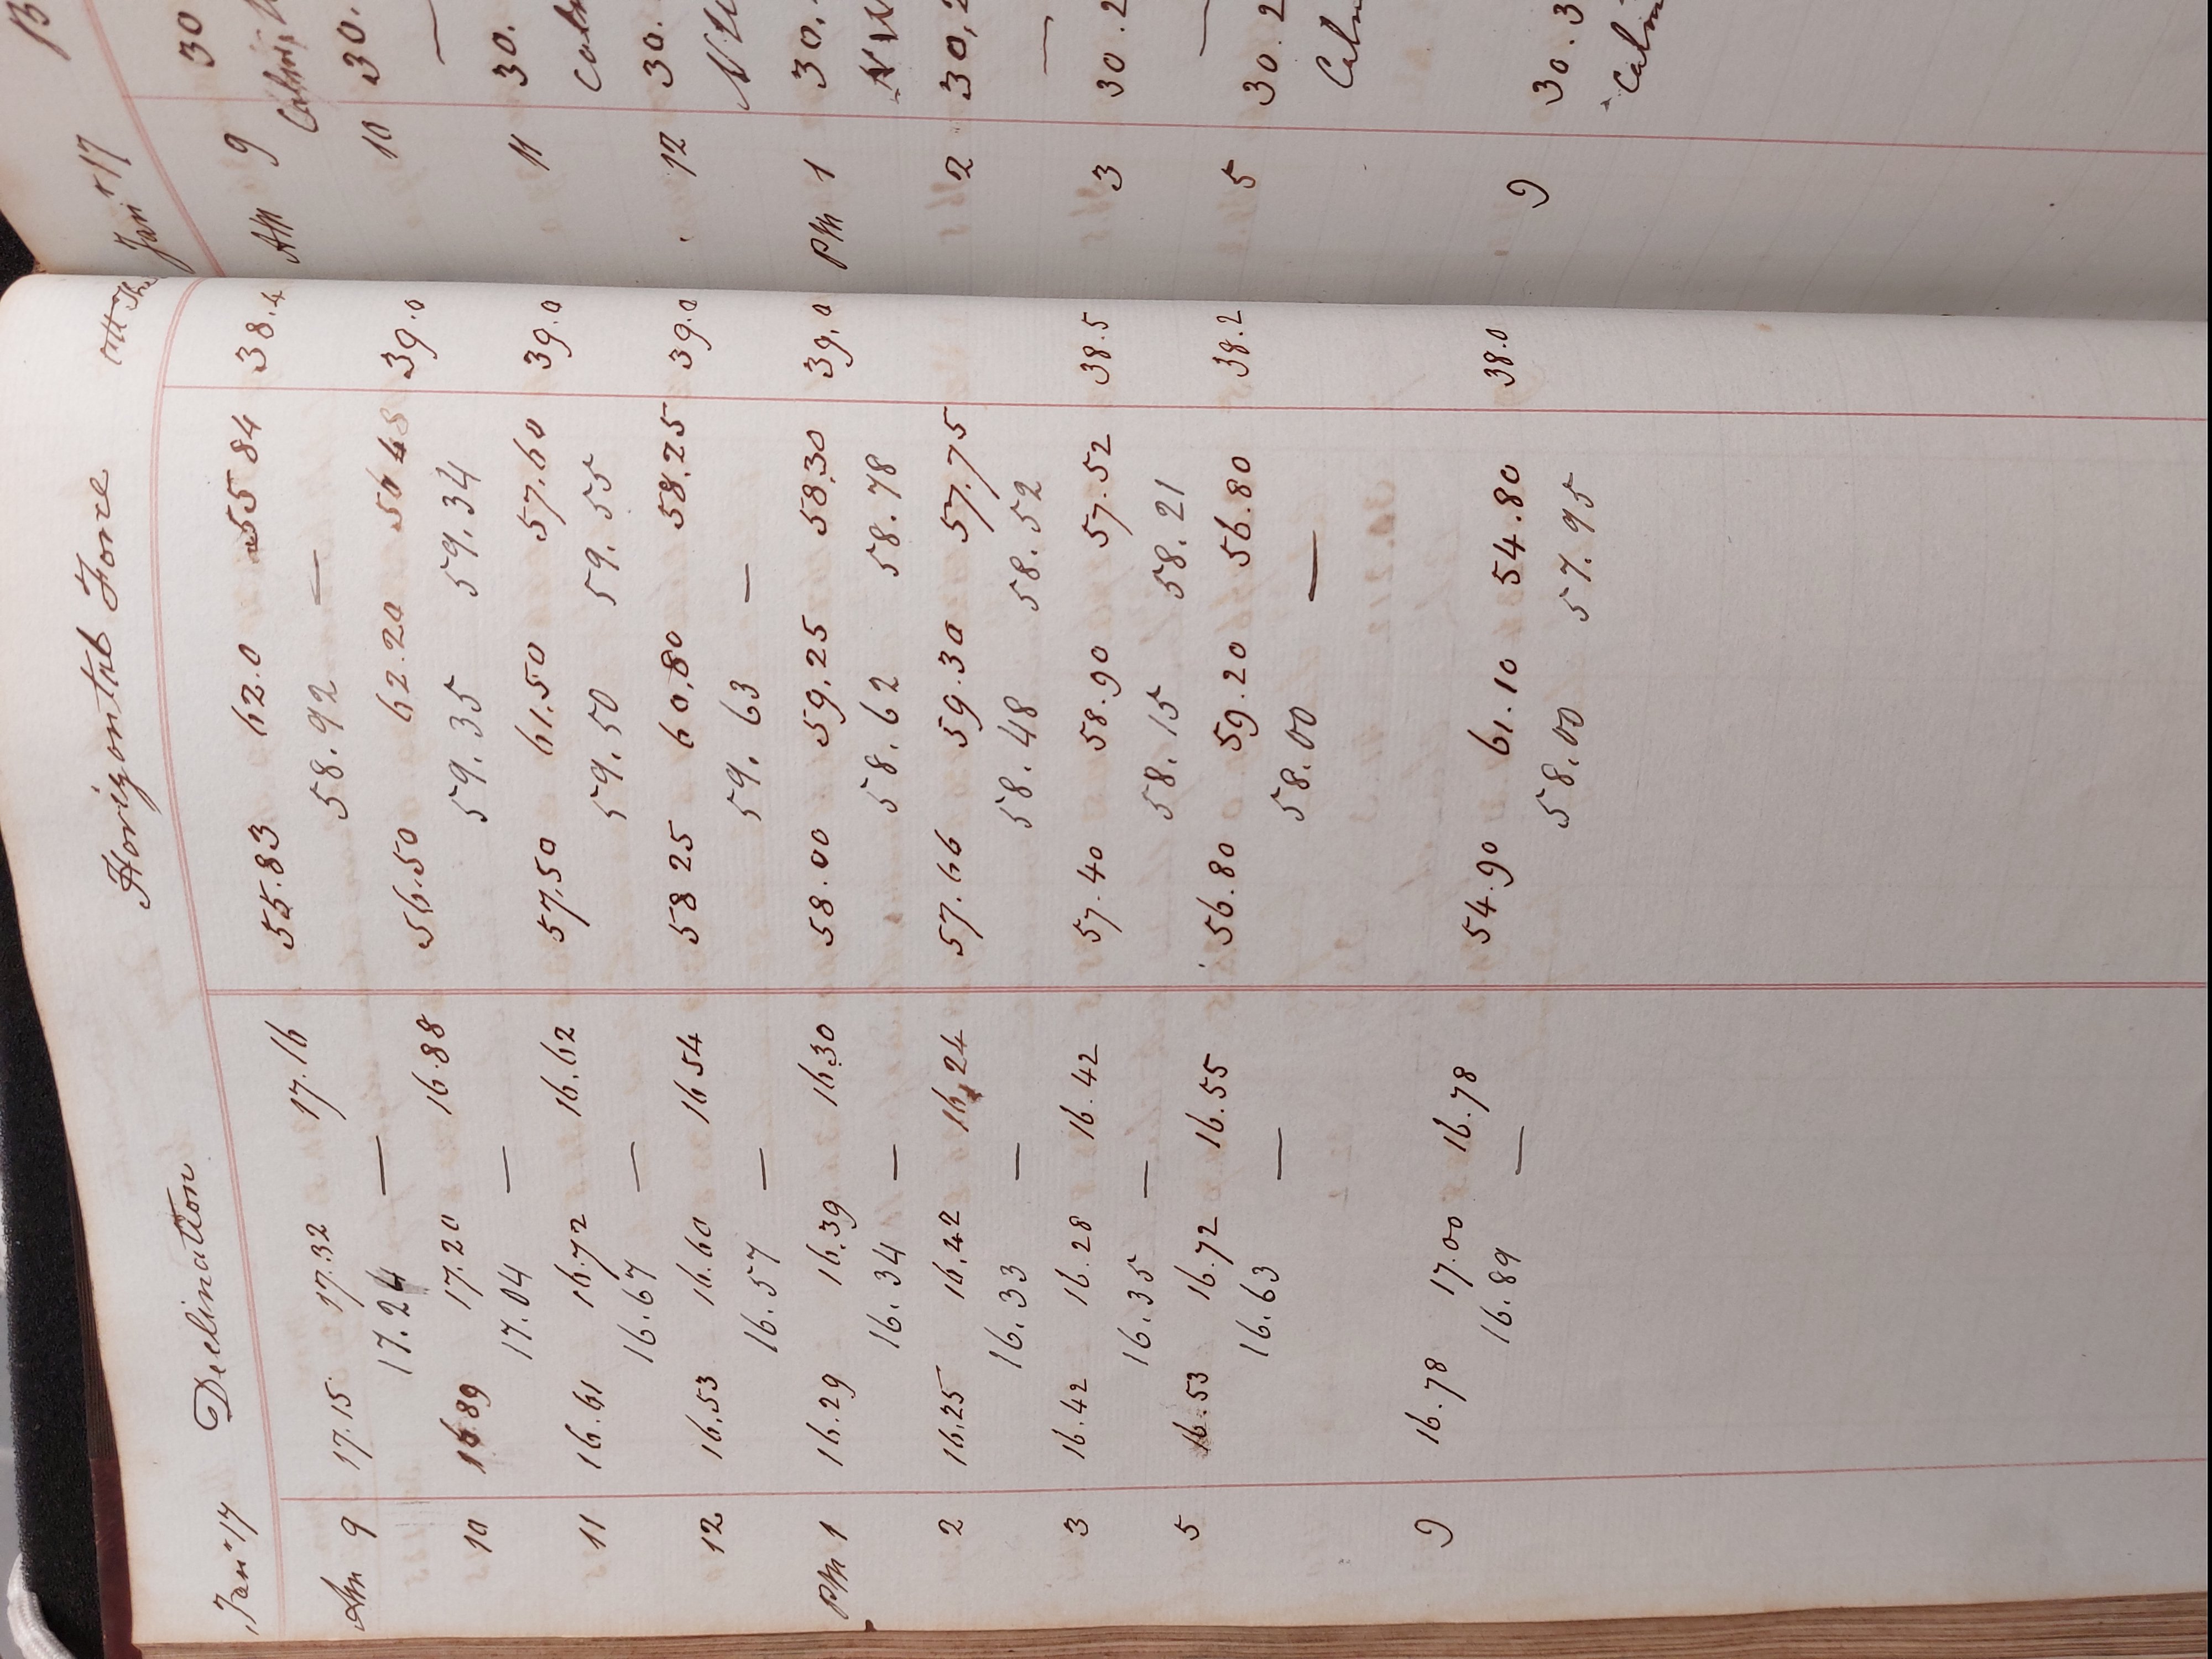 Jany 17 Declination Horizontal Force Att The
Am 9 17.15 17.32 17.16 55.83 62.0 55 84 38.4
17.24 — 58.92 —
10 16.89 17.20 16.88 56.50 62.20 56 48 39.0
17.04 — 59.35 59.34
11 16.61 16.72 16.62 57.50 61.50 57.60 39.0
16.67 — 59.50 59.55
12 16.53 16.60 16 54 58 25 60.80 58.25 39.0
16.57 — 59.63 —
PM 1 16.29 16.39 16.30 58.00 59.25 58.30 39.0
16.34 — 58.62 58.78
2 16.25 16.42 16.24 57.66 59.30 57.75
16.33 — 58.48 58.52
3 16.42 16.28 16.42 57.40 58.90 57.52 38.5
16.35 — 58.15 58.21
5 16.53 16.72 16.55 56.80 59.20 56.80 38.2
16.63 — 58.00 —
9 16.78 17.00 16.78 54.90 61.10 54.80 38.0
16.89 — 58.00 57.95
B
Jany 17
AM 9 30
Calm,
10 30.
—
11 30.
Calm
12 30.
PM 1 30.
NW
2 30,2
—
3 30.2
—
5 30.2
Calm
9 30.3
Calm